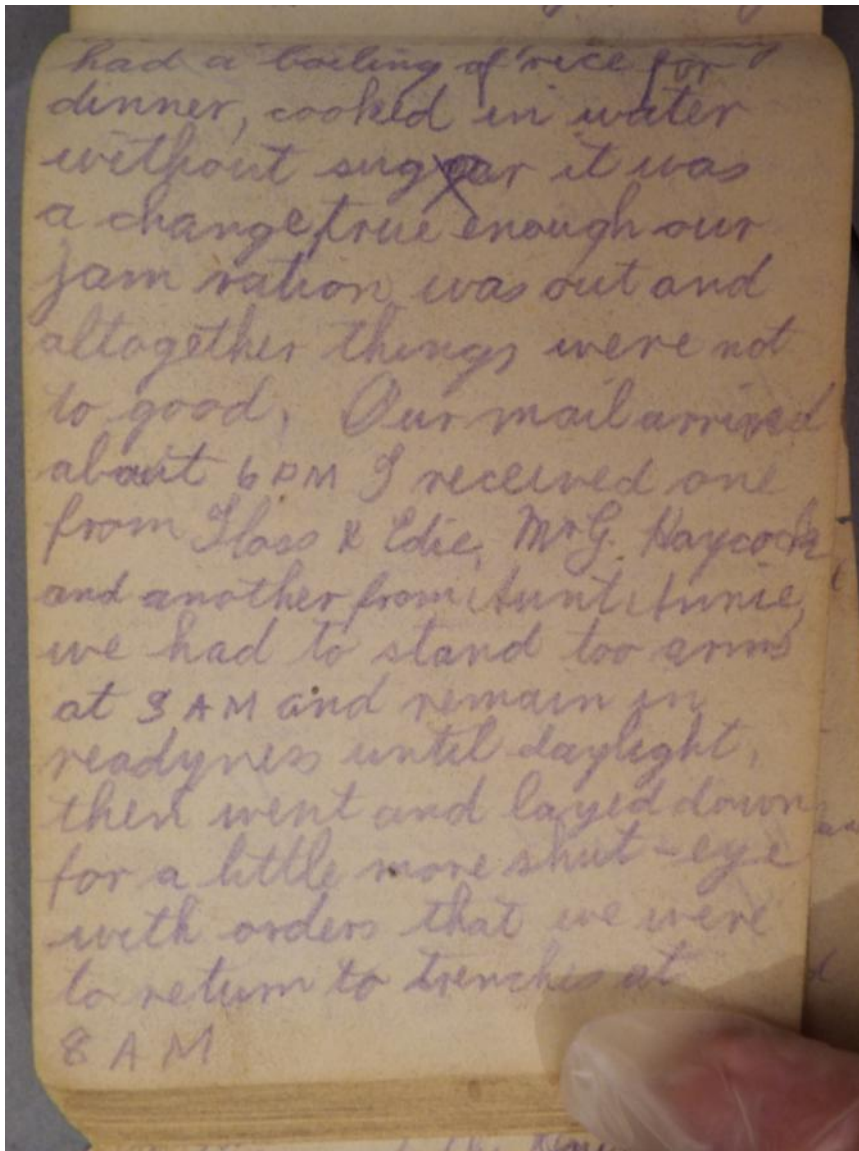 had a boiling of rice for
dinner, cooked in water
without sugar it was
a change, true enough our
jam ration was out and
altogether things were not
to good. Our mail arrived
about 6 PM I received one
from Floss & Edie, Mr G. Haycock
and another from Aunt Annie,
we had to stand too arms
at 3 AM and remain in
readyness until daylight,
then went and layed down
for a little more shut-eye
with orders that we were
to return to trenches at
8 AM